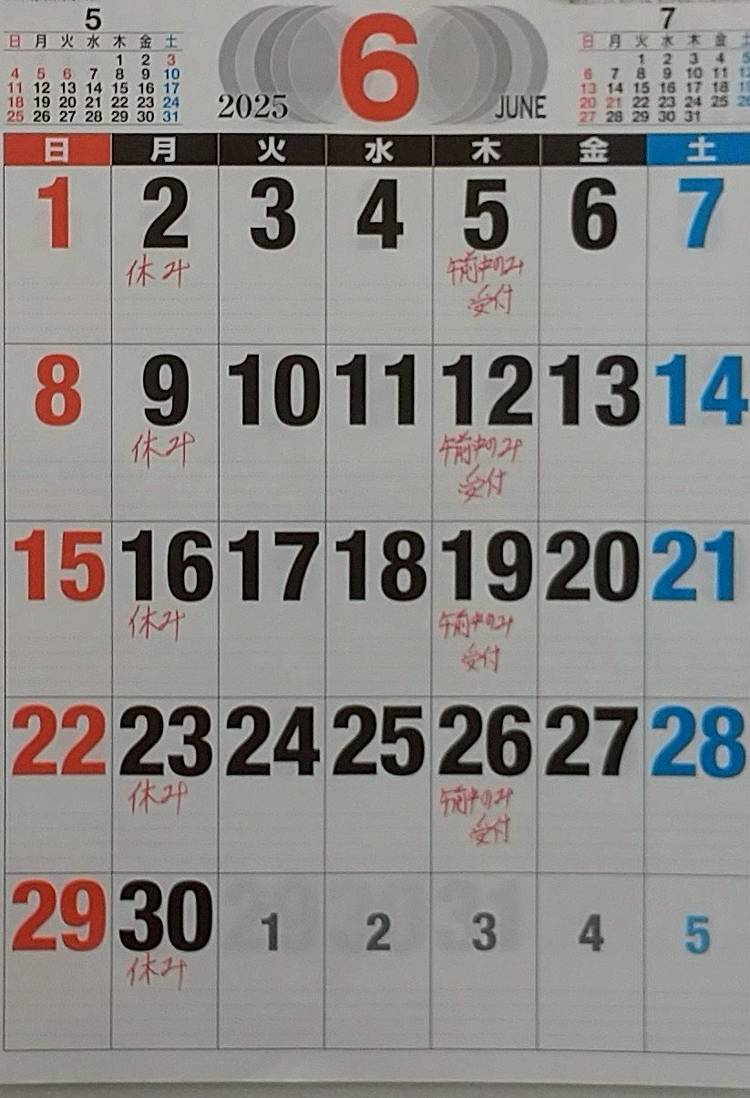 5
日 月 火 水 木 金 土
1 2 3
4 5 6 7 8 9 10
11 12 13 14 15 16 17
18 19 20 21 22 23 24
25 26 27 28 29 30 31
2025 6 JUNE
7
日 月 火 水 木 金 土
1 2 3 4 5
6 7 8 9 10 11 12
13 14 15 16 17 18 19
20 21 22 23 24 25 26
27 28 29 30 31
日 月 火 水 木 金 土
1 2 3 4 5 6 7
休み 午前中のみ
受付
8 9 10 11 12 13 14
休み 午前中のみ
受付
15 16 17 18 19 20 21
休み 午前中のみ
受付
22 23 24 25 26 27 28
休み 午前中のみ
受付
29 30 1 2 3 4 5
休み